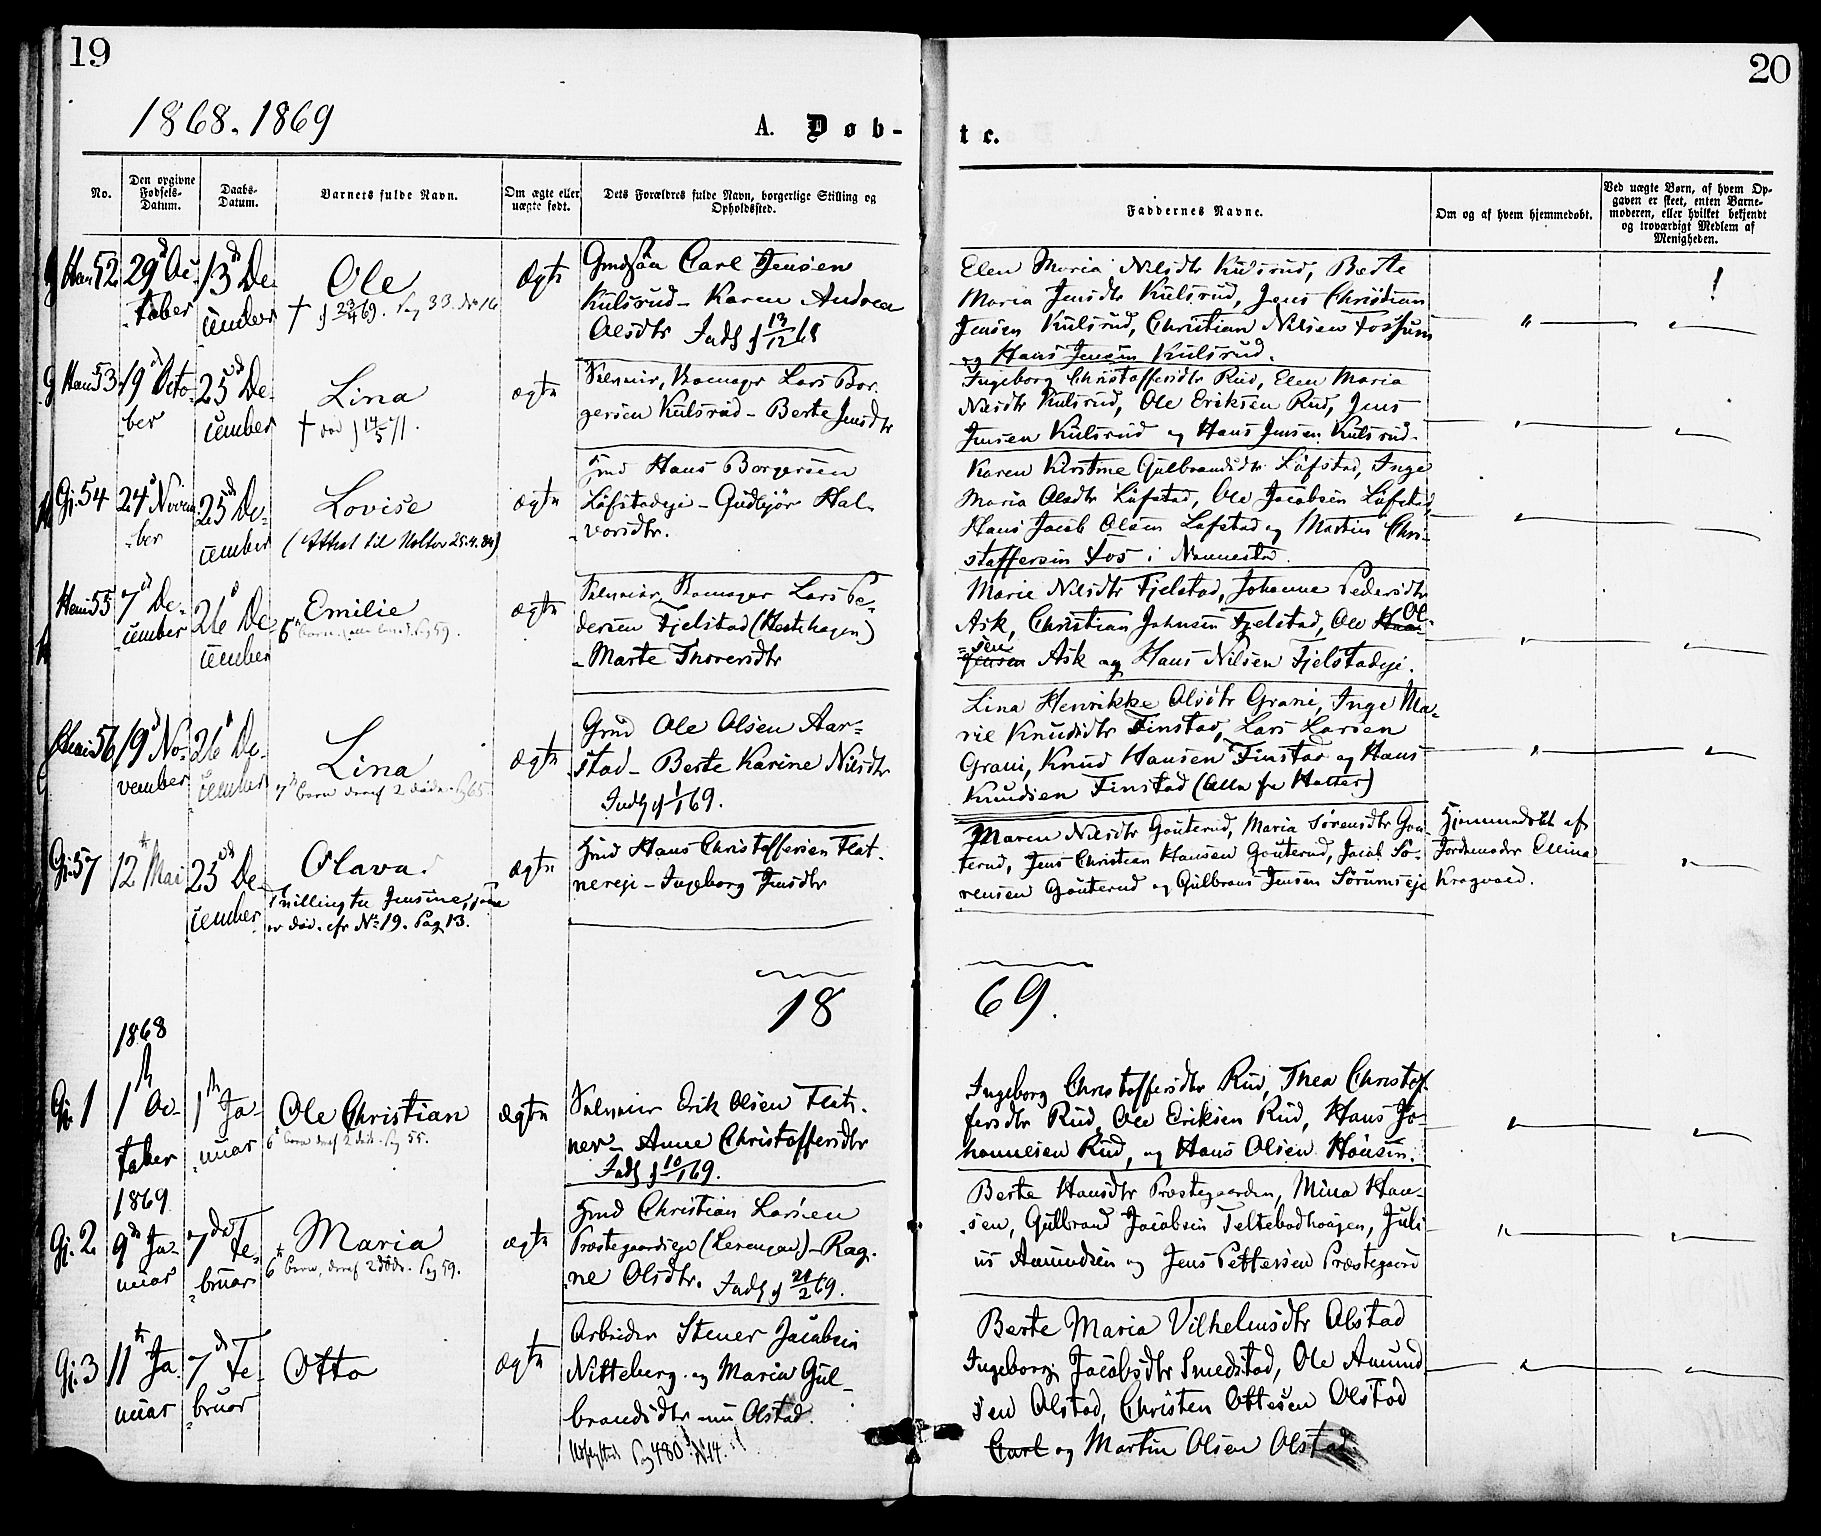 19
20
1868. 1869
A. Døb-
te.
No.
Den opgivne Fødsels-Datum.
Daabs-Datum.
Barnets fulde Navn.
Om ægte eller uægte født.
Dets Forældres fulde Navn, borgerlige Stilling og Opholdssted.
Faddernes Navne.
Om og af hvem hjemmedøbt.
Ved uægte Børn, af hvem Op-
gaven er skeet, enten Barne-
moderen, eller hvilket bekjendt
og troværdigt Medlem af
Menigheden.
52
29 Oc-
tober
13 De-
cember
Ole
† 23/4 69. Pag 33. No 16
Ægte
Carl Jensen
Kulsrud - Karen Andrea
Olsdtr 13/12 68
Elen Maria Nilsdtr Kulsrud, Berte
Maria Jensdtr Kulsrud, Jens Christian
Jensen Kulsrud, Christian Nilsen Fossum
og Hans Jensen Kulsrud.
53
19 Octo-
ber
25 De-
cember
Lina
† 14/5 71.
ægte
Lars Bor-
gersen Kulsrud - Berte Jensdtr
Ingeborg Christoffersdtr Rud, Elen Maria
Nilsdtr Kulsrud, Ole Eriksen Rud, Jens
Jensen Kulsrud og Hans Jensen Kulsrud.
Gj. 54
24 Novem-
ber
25 De-
cember
Lovise
(Attest til 25.4.84)
ægte
Hans Borgersen
Løfstadeje - Gudbjør Hal-
vorsdtr.
Karen Kirstine Gulbrandsdtr Løfstad, Inge
Maria Olsdtr Løfstad, Ole Jacobsen Løfstad
Hans Jacob Olsen Løfstad og Martin Chri-
stoffersen Fos i Nannestad.
55
7 De-
cember
26 De-
cember
Emilie
ægte
Lars Pe-
dersen Fjelstad (Hestehagen)
- Marte Thoresdtr
Marie Nilsdtr Fjelstad, Johanne Pedersdtr
Ask, Christian Johnsen Fjelstad, Ole Ol-
sen Ask og Hans Nilsen Fjelstadeje.
56
19 No-
vember
26 De-
cember
Lina
7 Barn deraf 2 døde. Pag 65.
ægte
Ole Olsen Aar-
stad - Berte Karine Nilsdtr
1/1 69.
Lina Henrikke Olsdtr Grani, Inge Ma-
rie Knudsdtr Finstad, Lars Larsen
Grani, Knud Hansen Finstad og Hans
Knudsen Finstad (Alle fra Holter)
Gj. 57
12 Mai
25 De-
cember
Olava.
Tvilling til Jensine, som
er død. cfr No 19. Pag 13.
ægte
Hans Christoffersen Flat-
nereje - Ingeborg Jensdtr
Maren Nilsdtr Gouterud, Maria Sørensdtr Gou-
terud, Jens Christian Hansen Gouterud, Jacob Sø-
rensen Gouterud og Gulbrand Jensen Sørumseje
Hjemmedøbt af
Jordemoder Elina
Kragvold.
18
69.
1868
Gj. 1
1 Oc-
tober
1 Ja-
nuar
Ole Christian
6 Barn deraf 2 døde. Pag 55.
ægte
Erik Olsen Flat-
ner - Anne Christoffersdtr
10/1 69.
Ingeborg Christoffersdtr Rud, Thea Christof-
fersdtr Rud, Ole Eriksen Rud, Hans Jo-
hannesen Rud, og Hans Olsen
1869
Gj. 2
9 Ja-
nuar
7 Fe-
bruar
Maria
6 Barn, deraf 2 døde. Pag 59.
ægte
Christian Larsen
Præstegaardseje - Rag-
ne Olsdtr. 21/2 69.
Berte Hansdtr Præstegaarden, Mina Han-
sen, Gulbrand Jacobsen Teltebadhaugen, Juli-
us Amundsen og Jens Pettersen Præstegaard
Gj. 3
11 Ja-
nuar
7 Fe-
bruar
Otto
ægte
Arbeider Stener Jacobsen
Nitteberg og Maria Gul-
brandsdtr Olstad.
Pag 480 N 14.
Berte Maria Vilhelmsdtr Olstad
Ingeborg Jacobsdtr Smedstad, Ole Amund-
sen Olstad, Christen Ottesen Olstad
Carl og Martin Olsen Olstad